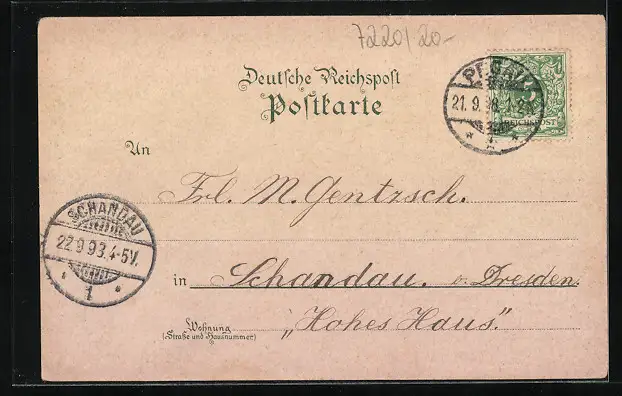 7220/20-
Deutsche Reichspost
Postkarte
PEGAU
21.9.
REICHSPOST
An
Frl. M. Gentzsch.
SCHANDAU
22.9.93.4-5N.
1
in Schandau. b. Dresden.
Wohnung
(Straße und Hausnummer)
„Hohes Haus."